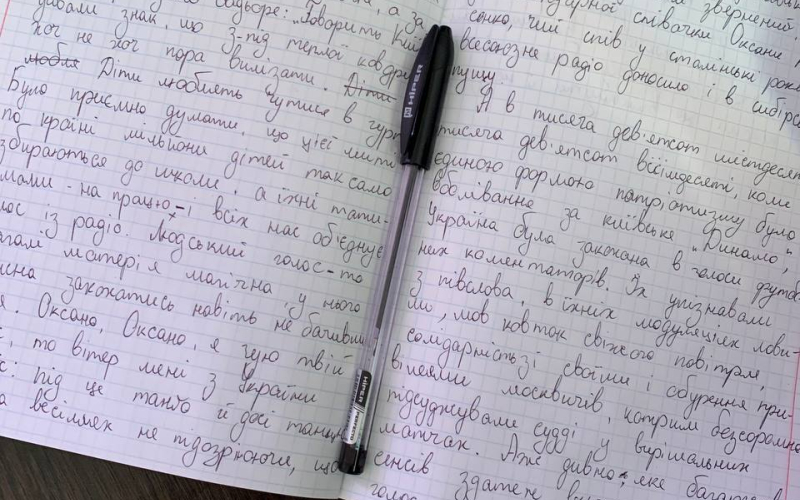 , а за
надворе: „Говорить Київ
ували знак, що з-під теплої ковдри
хоч не хоч пора вилізати. Діти
любля Діти люблять чутися в гурті
Було приємно думати, що цієї миті
по країні мільйони дітей так само
збираються до школи, а їхні тати-
мами - на працю - і всіх нас об'єднує
лос із радіо. Людський голос - то
матерія магічна, у нього
закохатись навіть не бачивши
. Оксано, Оксано, я чую твій
, то вітер мені з України
під це танго й досі танцю
весіллях не підозрюючи, що
звернений
співачки Оксани
енко, чий спів у сталінські роки
всесоюзне радіо доносило і в сибірс
пущу
А в тисяча дев'ятсот шістдесяті
тисяча дев'ятсот вісімдесяті, коли
єдиною формою патріотизму було
вболівання за київське „Динамо",
Україна була закохана в голоси футбо
них коментаторів. Їх упізнавали
з півслова, в їхніх модуляціях лови-
ли, мов ковток свіжого повітря,
солідарність зі своїми і обурення при-
вілеями москвичів, котрим безсоромно
підсуджували судді у вирішальних
матчах. Аж дивно, яке багатс
сенсів здатен
голос
HIPER
HIPER